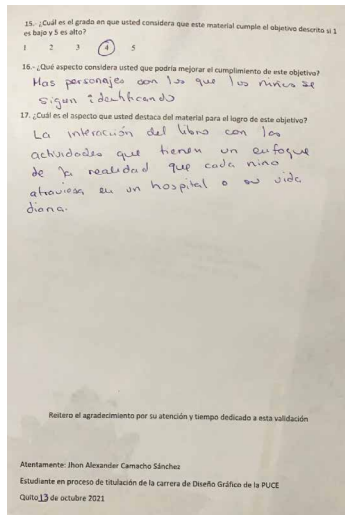 15.- ¿Cuál es el grado en que usted considera que este material cumple el objetivo descrito si 1
es bajo y 5 es alto?
1 2 3 4 5
16.- ¿Qué aspecto considera usted que podría mejorar el cumplimiento de este objetivo?
Mas personajes con los que los niños se
sigan identificando
17. ¿Cuál es el aspecto que usted destaca del material para el logro de este objetivo?
La interacción del libro con las
actividades que tienen un enfoque
de la realidad que cada niño
atraviesa en un hospital o su vida
diaria.
Reitero el agradecimiento por su atención y tiempo dedicado a esta validación
Atentamente: Jhon Alexander Camacho Sánchez
Estudiante en proceso de titulación de la carrera de Diseño Gráfico de la PUCE
Quito 13 de octubre 2021